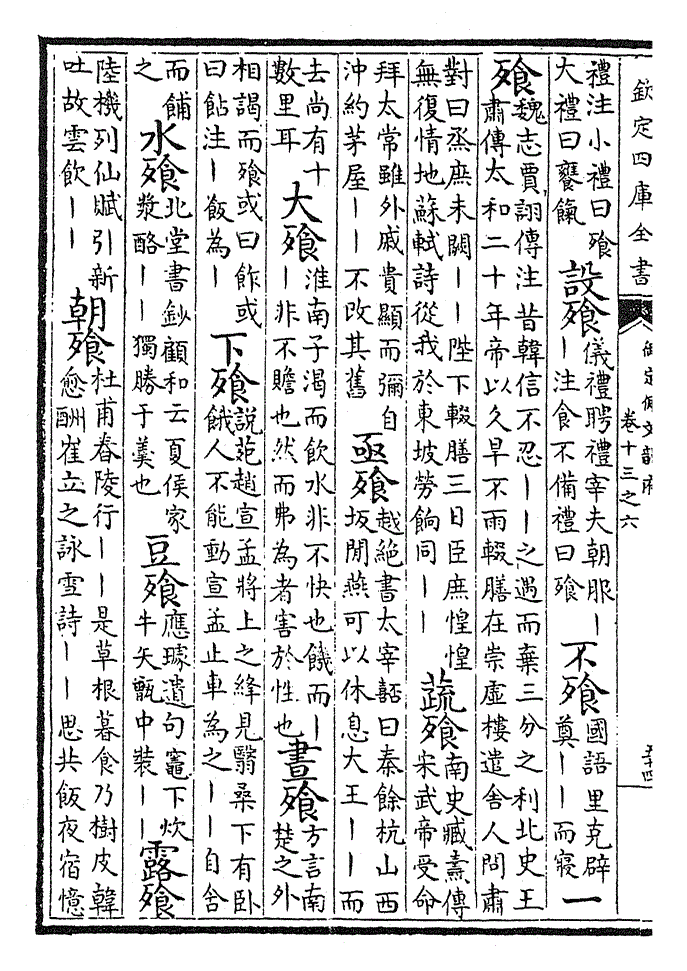 欽定四庫全書 御定佩文韻府 卷十三之六 五十四
禮注小禮曰飱大禮曰饔餼 設飱 儀禮聘禮宰夫朝服丨丨注食不備禮曰飱 不飱 國語里克辟奠丨丨而寢 一
飱 魏志賈詡傳注昔韓信不忍丨丨之遇而棄三分之利北史王肅傳太和二十年帝以久旱不雨輟膳在崇虛樓遣舍人問肅
對曰烝庶未闕丨丨陛下輟膳三日臣庶惶惶無復情地蘇軾詩從我於東坡勞餉同丨丨 蔬飱 南史臧燾傳宋武帝受命
拜太常雖外戚貴顯而彌自沖約茅屋丨丨不改其舊 亟飱 越絕書太宰嚭曰秦餘杭山西坂閒燕可以休息大王丨丨而
去尚有十數里耳 大飱 淮南子渴而飲水非不快也饑而丨丨非不贍也然而弗為者害於性也 晝飱 方言南楚之外
相謁而飱或曰飵或曰䬯注丨飯為丨 下飱 説苑趙宣孟將上之絳見翳桑下有卧餓人不能動宣孟止車為之丨丨自含
而餔之 水飱 北堂書鈔顧和云夏侯家漿酪丨丨獨勝于羹也 豆飱 應璩遺句竈下炊牛矢甑中裝丨丨 露飱
陸機列仙賦引新吐故雲飲丨丨 朝飱 杜甫舂陵行丨丨是草根暮食乃樹皮韓愈酬崔立之詠雪詩丨丨思共飯夜宿憶